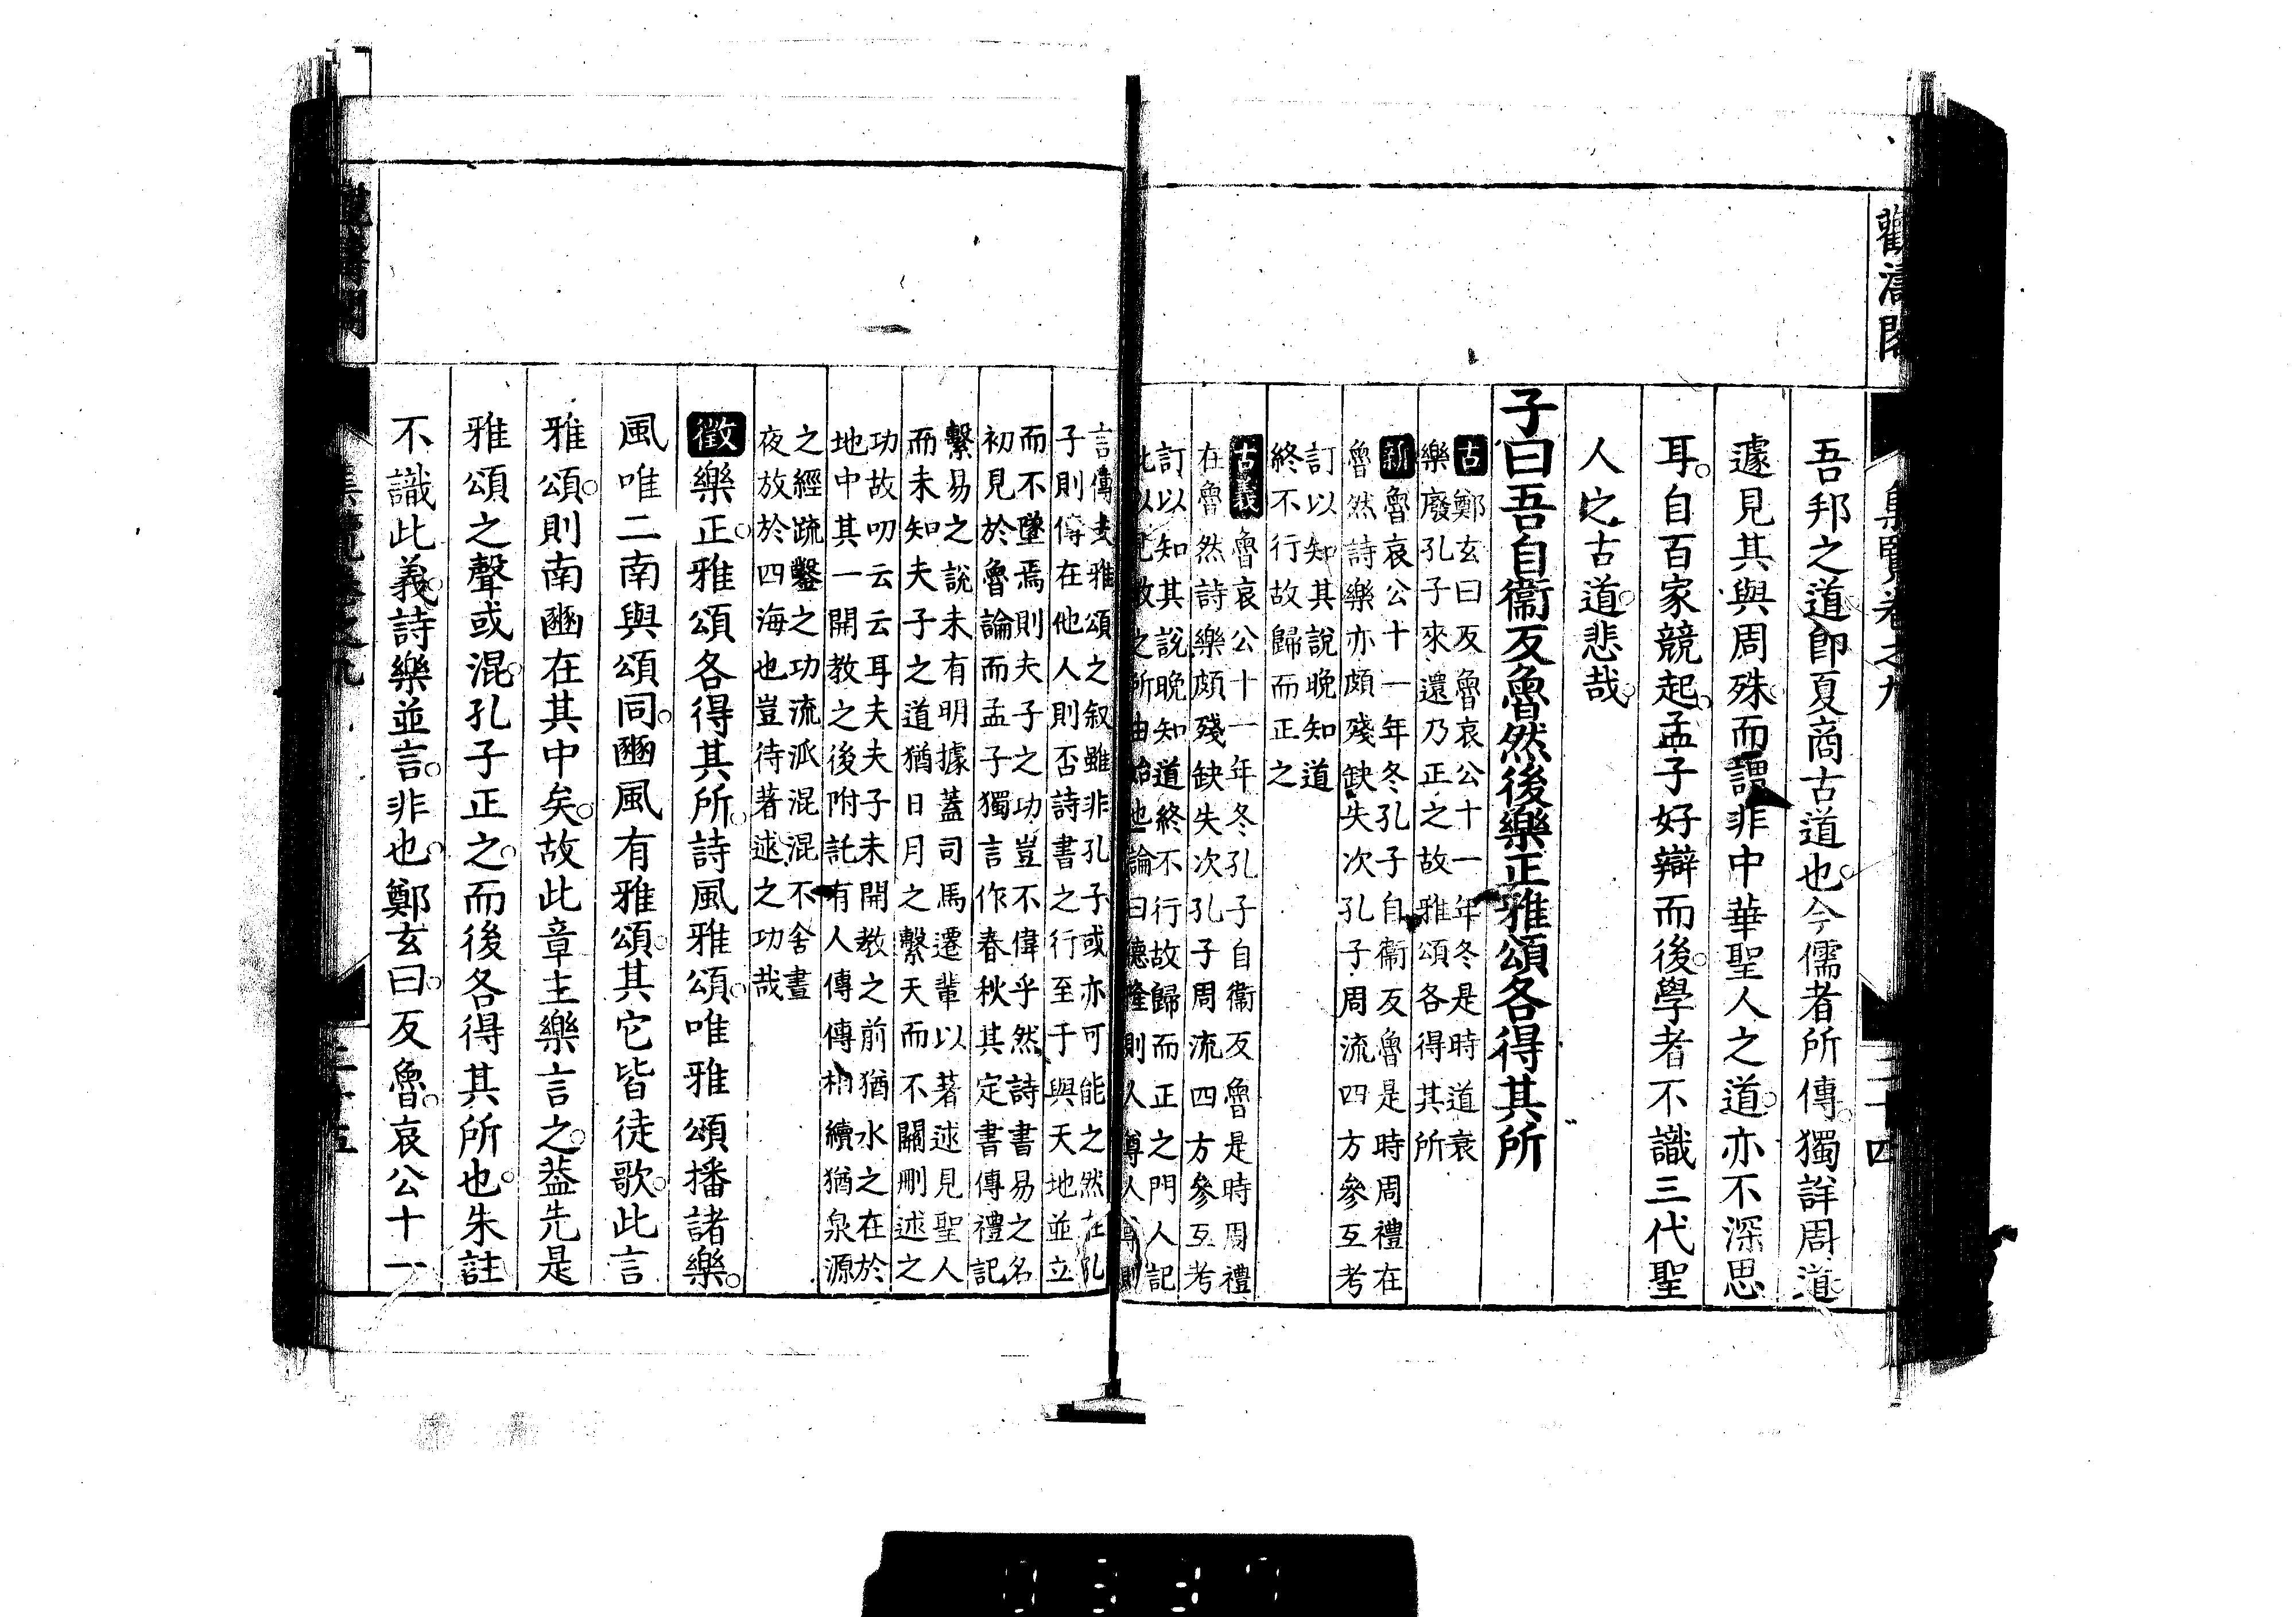 觀濤閣
集覽卷之九
二十四
吾邦之道卽夏商古道也今儒者所傳獨詳周道
遽見其與周殊而謂非中華聖人之道亦不深思
耳自百家競起孟子好辯而後學者不識三代聖
人之古道悲哉
子曰吾自衞反魯然後樂正雅頌各得其所
古 鄭玄曰反魯哀公十一年冬是時道衰
樂廢孔子來還乃正之故雅頌各得其所
新 魯哀公十一年冬孔子自衞反魯是時周禮在
魯然詩樂亦頗殘缺失次孔子周流四方參互考
訂以知其說晚知道
終不行故歸而正之
古義 魯哀公十一年冬孔子自衞反魯是時周禮
在魯然詩樂頗殘缺失次孔子周流四方參互考
訂以知其說晚知道終不行故歸而正之門人記
此以見敎之所由始也論曰德隆則人
言傳夫雅頌之叙雖非孔子或亦可能之然在孔
子則傳在他人則否詩書之行至于與天地並立
而不墜焉則夫子之功豈不偉乎然詩書易之名
初見於魯論而孟子獨言作春秋其定書傳禮記
繫易之說未有明據蓋司馬遷輩以著述見聖人
而未知夫子之道猶日月之繫天而不關刪述之
功故叨云云耳夫夫子未開敎之前猶水之在於
地中其一開敎之後附託有人傳傳相續猶泉源
之經疏鑿之功流派混混不舍晝
夜放於四海也豈待著述之功哉
徵 樂正雅頌各得其所詩風雅頌唯雅頌播諸樂
風唯二南與頌同豳風有雅頌其它皆徒歌此言
雅頌則南豳在其中矣故此章主樂言之蓋先是
雅頌之聲或混孔子正之而後各得其所也朱註
不識此義詩樂並言非也鄭玄曰反魯哀公十一